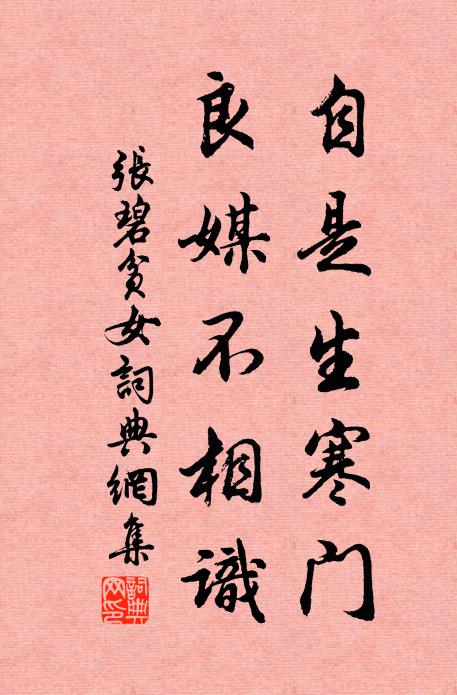 自是生寒门
良媒不相識
張碧貧女詞典網集
詞典网印